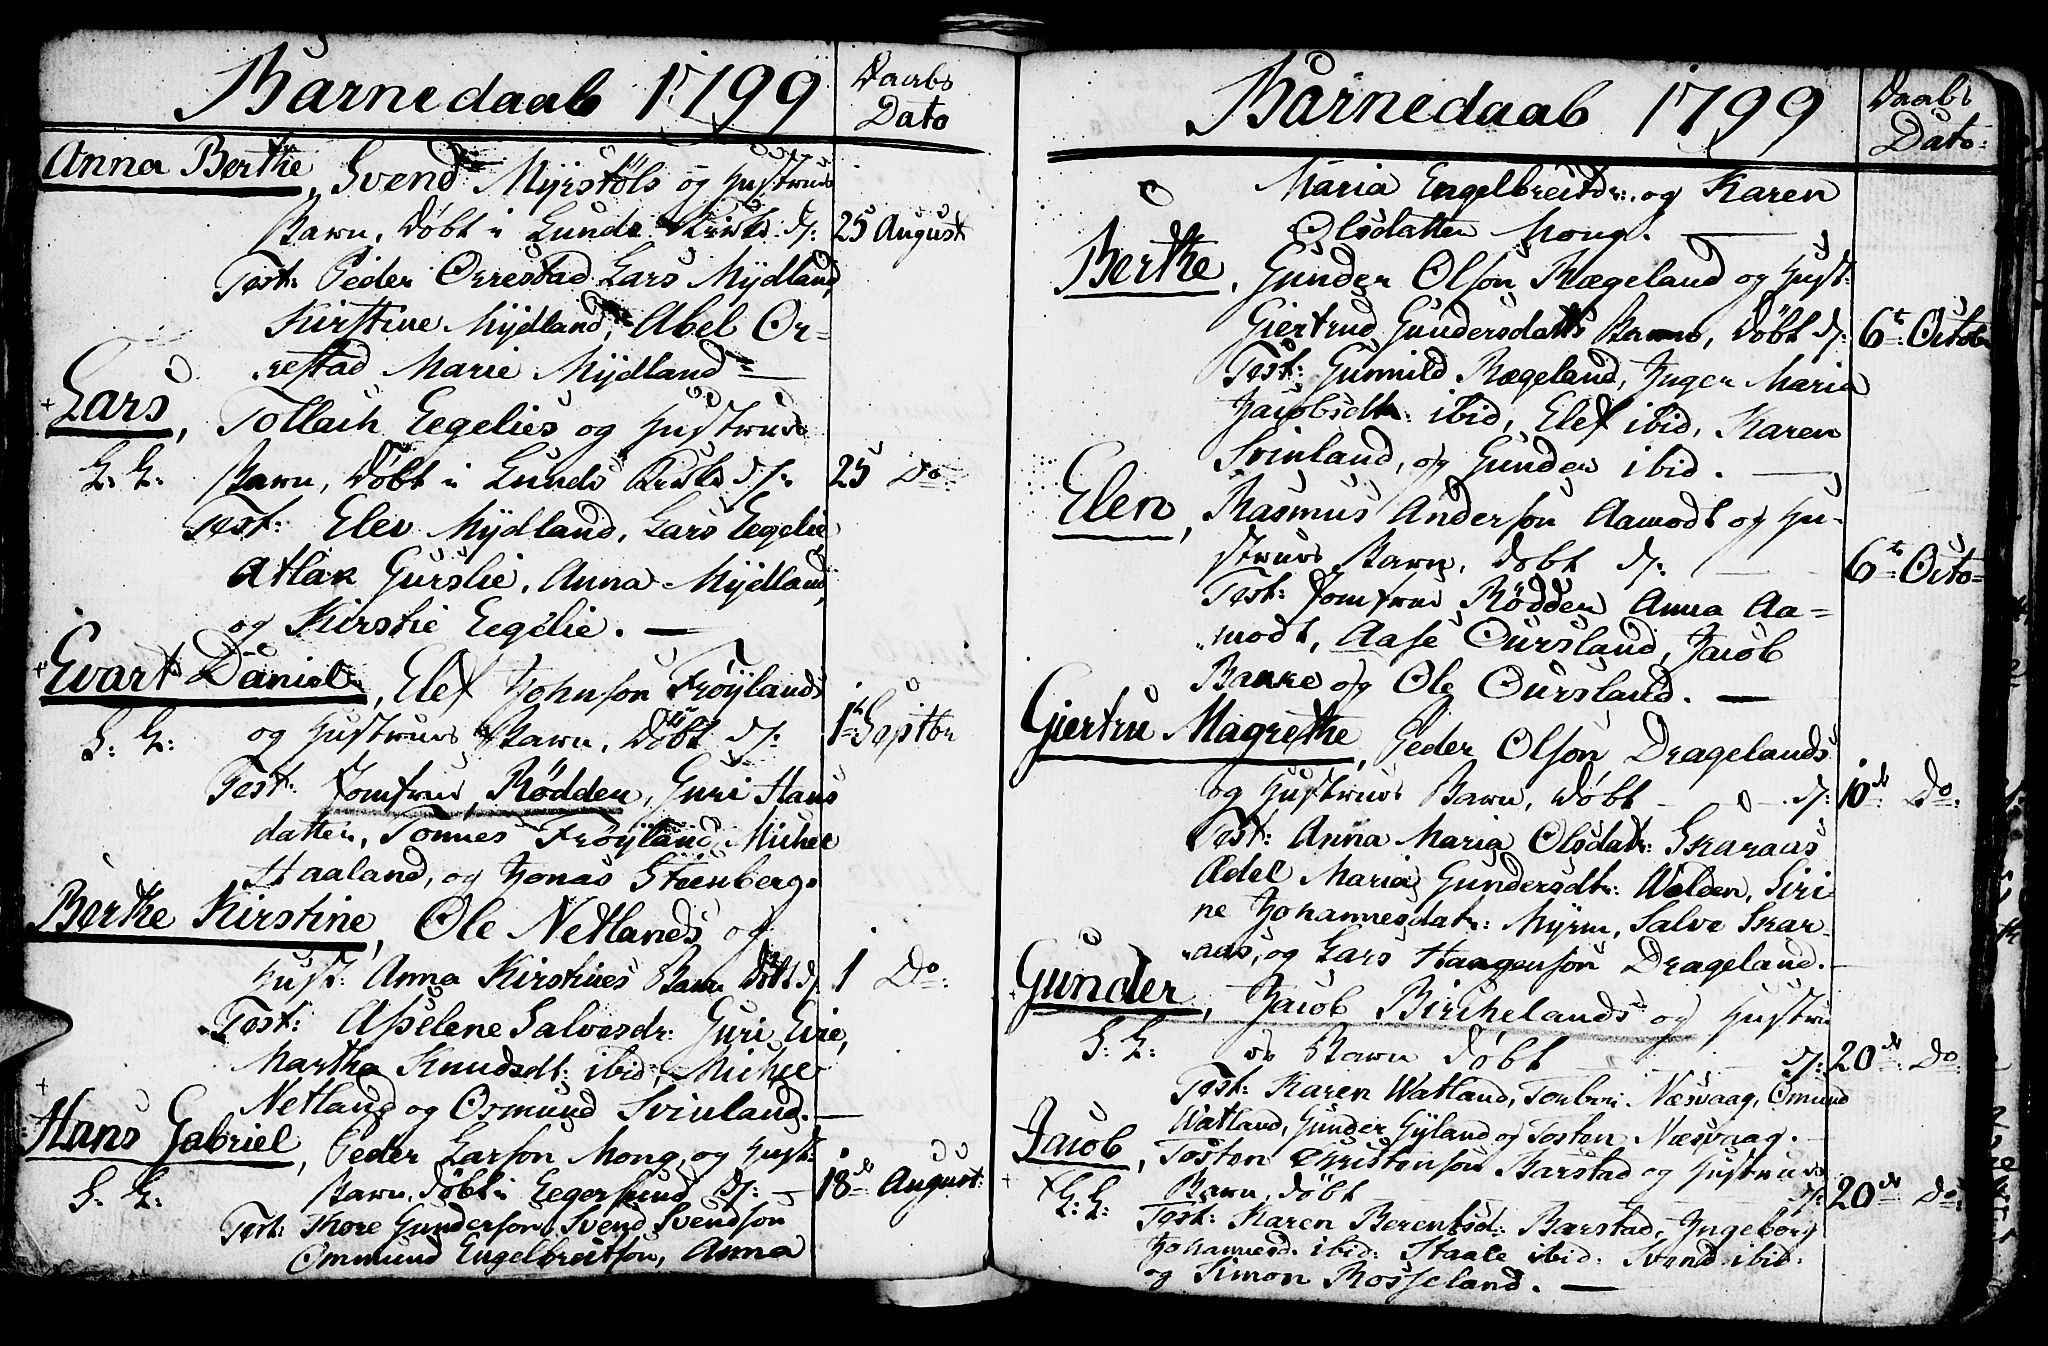 Barnedaab 1799
Daabs
Dato
Anna Berthe, Svend Myrstøls og Hustrues
Barn, døbt i Lunde Kirke d: 25 August
Test: Peder Orrestad Lars Mydland,
Kirstine Mydland, Abel Or-
restad Marie Mydland
Lars, Tollach Eegelies og Hustrues
Barn, døbt i Lunde Kirke d: 25 Do
Test: Elev Mydland, Lars Eegelie
Atlak Gurslie, Anna Mydland,
og Kirstie Eegelie.
Evart Daniel, Elef Johnson Frøylands
og Hustrues Barn, døbt d: 1te Septbr
Test: Jomfrue Rødder, Guri Hans
datter, Tønnes Frøyland, Michel
Haaland, og Jonas Steenberg.
Berthe Kirstine, Ole Netlands og
Hust: Anna Kirstines Barn døbt d: 1 Do:
Test: Asselene Salvesdr: Guri Evie,
Martha Knudsdt: ibid, Michel
Netland og Osmund Svinland.
Hans Gabriel, Peder Larson Mong og Hust:
Barn, døbt i Egersund d: 18de August:
Test: Thore Gunderson, Svend Svendson
Ommund Engelbreitson, Anna
Barnedaab 1799
Daabs
Dato:
Maria Engelbreitdr: og Karen
Olsdatter Mong.
Berthe, Gunder Olson Rægeland og Hust:
Giertrud Gundersdatts Barn, døbt d: 6te Octob
Test: Gunnild Rægeland, Inger Maria
Jacobsdtr: ibid, Elef ibid, Karen
Svinland, og Gunder ibid.
Elen, Rasmus Anderson Aamodt og Hu-
strues Barn, døbt d: 6te Octo=
Test: Jomfrue Rødder Anna Aa=
modt, Aase Oursland, Jacob
Bakke og Ole Oursland.
Giertru Magrethe, Peder Olson Dragelands
og Hustrues Barn, døbt d: 10de Do:
Test: Anna Maria Olsdatr: Skaraas
Adel Maria Gundersdtr: Walden, Siri
ne Johannesdatr: Myrm, Salve Skar-
aas, og Lars Haagenson Drageland.
Gunder, Jacob Birkelands og Hustru
es Barn døbt d: 20de Do:
Test: Karen Watland, Torber Næsvaag, Omund
Watland, Gunder Gyland og Tosten Næsvaag.
Jacob, Tosten Christenson Barstad og Hustrues
Barn, døbt d: 20de Do:
Test: Karen Berentsd: Barstad, Ingeborg
Johannesd. ibid: Staale ibid. Svend ibid.
og Simon Rosseland.